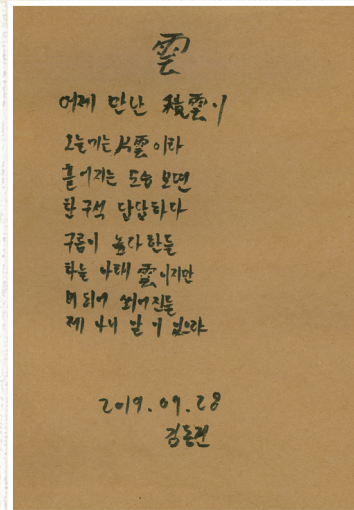 雲
어제 만난 積雲이
오늘에는 片雲이라
흩어지는 모습 보면
한 구석 답답하다
구름이 높다 한들
하늘 아래 雲이지만
비 되어 쏟어진들
제 나니
2019. 09. 28
김동진